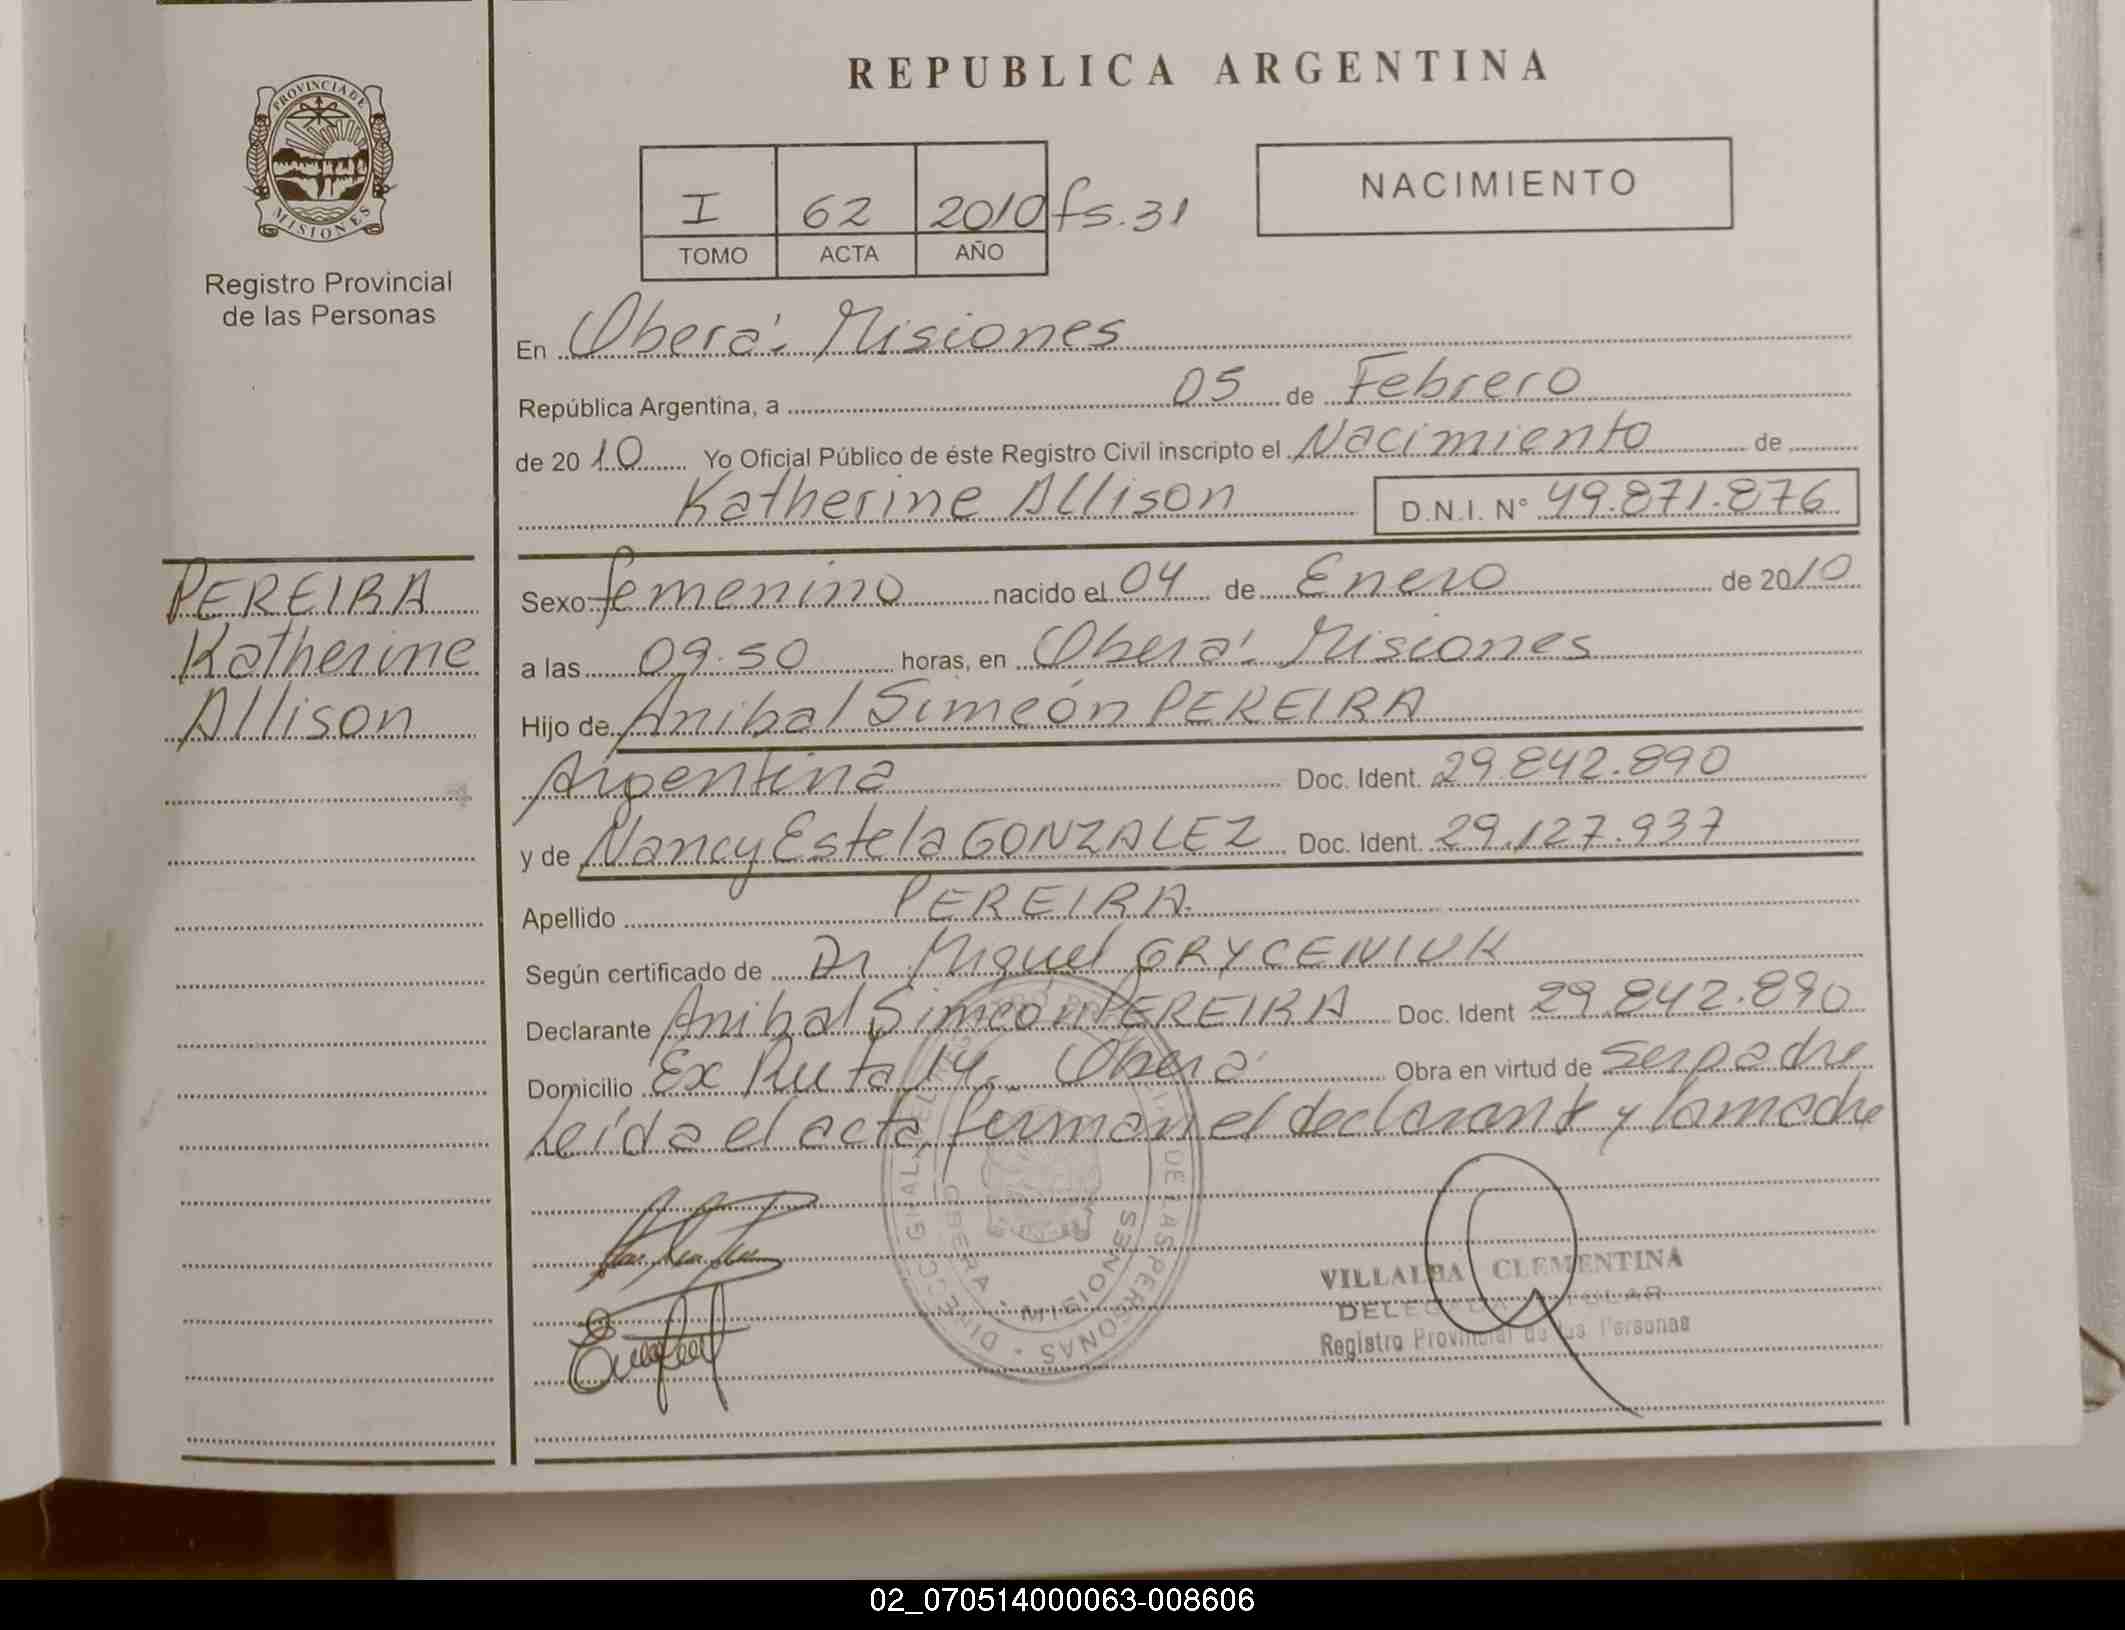 REPUBLICA ARGENTINA
PROVINCIA DE MISIONES
Registro Provincial
de las Personas
I 62 2010 fs. 31
TOMO ACTA AÑO
NACIMIENTO
En Oberá: Misiones
República Argentina, a 05 de Febrero
de 2010 Yo Oficial Público de éste Registro Civil inscripto el Nacimiento de
Katherine Allison D.N.I. N° 49.871.876
PEREIRA
Katherine
Allison
Sexo femenino nacido el 04 de Enero de 2010
a las 09.50 horas, en Oberá: Misiones
Hijo de Anibal Simeón PEREIRA
Argentina Doc. Ident. 29.842.890
y de Nancy Estela GONZALEZ Doc. Ident. 29.127.937
Apellido PEREIRA.
Según certificado de Dr Miguel GRYCENIUK
Declarante Anibal Simeón PEREIRA Doc. Ident 29.842.890
Domicilio Ex Ruta 14. Oberá Obra en virtud de ser padre
Leída el acta, firman el declarante y la madre
OBERA - MISIONES
VILLALBA CLEMENTINA
DELEGADA TITULAR
Registro Provincial de las Personas
02_070514000063-008606